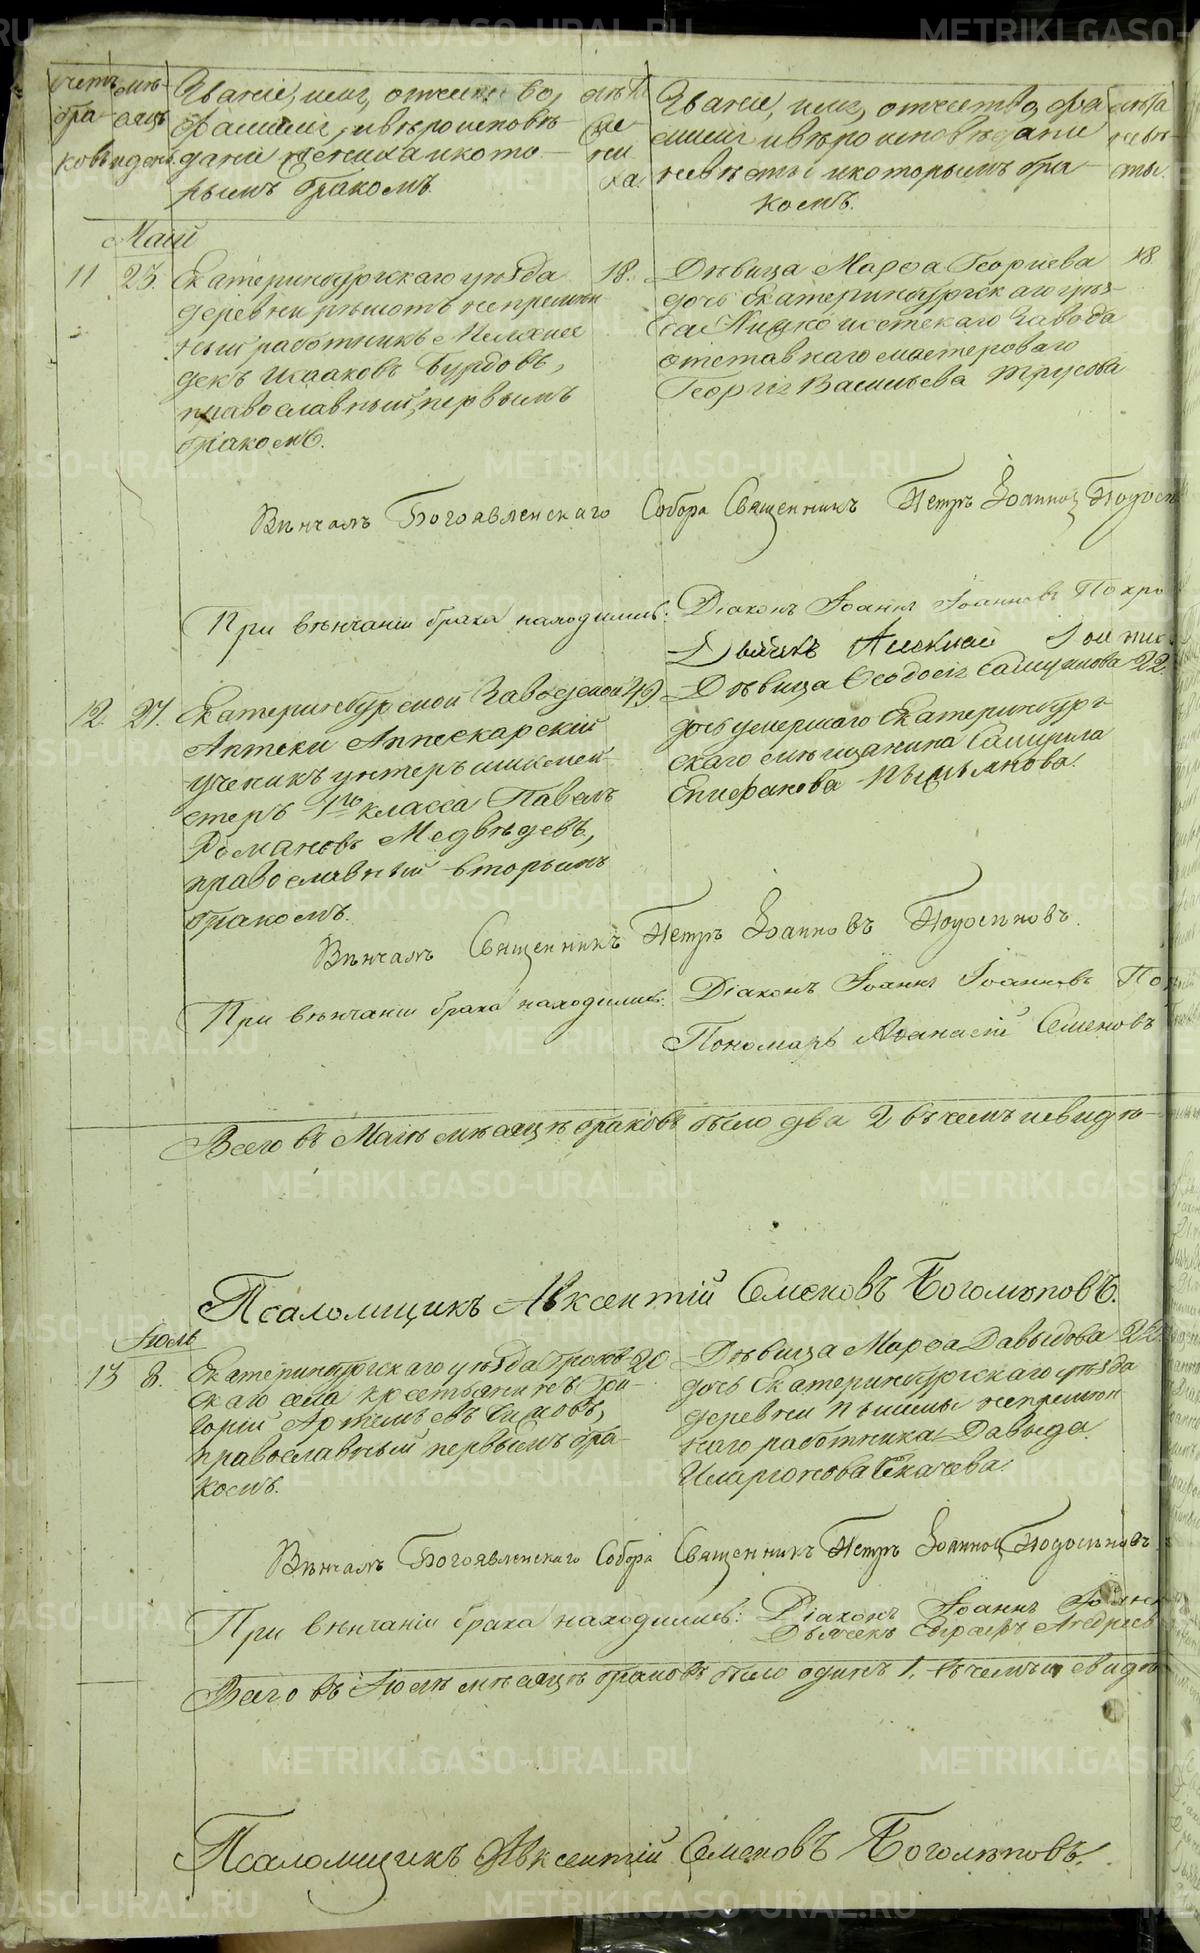 Счетъ бра- ковъ
мѣ- сяцъ и день.
Званіе, имя, отчество,
фамилія, и вѣроисповѣ-
даніе жениха и кото-
рымъ бракомъ.
лѣта же- ни- ха.
Званіе, имя, отчество, фа-
милія и вѣроисповѣданіе
невѣсты и которымъ бра-
комъ.
лѣта невѣ- сты.
Май
11 23. Екатеринбургскаго уѣзда 18.
деревни Рѣшотъ непремѣн
ный работникъ Мелхисе
декъ Исааковъ Бурдовъ,
православный, первымъ
бракомъ.
Дѣвица Марѳа Георгіева 18.
дочь Екатеринбургскаго уѣз-
да Нижнеисетскаго Завода
отставнаго мастероваго
Георгія Васильева Трусова
Вѣнчалъ Богоявленскаго Собора Священникъ Петръ Іоанновъ
При вѣнчаніи брака находились: Діаконъ Іоаннъ Іоанновъ Покро
Дьячекъ Алексѣй
12. 27. Екатеринбургской Заводской 49
Аптеки Аптекарскій
ученикъ унтеръ шихмей
стеръ 1го класса Павелъ
Романовъ Медвѣдевъ,
православный вторымъ
бракомъ.
Дѣвица Ѳеодосія Самуилова 22.
дочь умершаго Екатеринбург
скаго мѣщанина
Епифанова
Вѣнчалъ Священникъ Петръ Іоанновъ Подосеновъ.
При вѣнчаніи брака находились: Діаконъ Іоаннъ Іоанновъ По
Пономарь Аѳанасій Семеновъ
Всего въ Маіѣ мѣсяцѣ браковъ было два 2 въ чемъ и свидѣ
Псаломщикъ Авксентій Семеновъ Боголѣповъ.
Іюль
13 8. Екатеринбургскаго уѣзда 20
скаго села крестьянинъ Гри-
горій Артемьевъ Симовъ,
православный первымъ бра-
комъ.
Дѣвица Марѳа Давыдова 22.
дочь Екатеринбургскаго уѣзда
деревни Пышмы непремѣн
наго работника Давыда
Иларіонова Скачева.
Вѣнчалъ Богоявленскаго Собора Священникъ Петръ Іоанновъ Подосеновъ
При вѣнчаніи брака находились: Діаконъ Іоаннъ
Дьячекъ Андреев
Всего въ Іюлѣ мѣсяцѣ браковъ было одинъ 1. въ чемъ и свидѣ
Псаломщикъ Авксентій Семеновъ Боголѣповъ.
METRIKI.GASO-URAL.RU